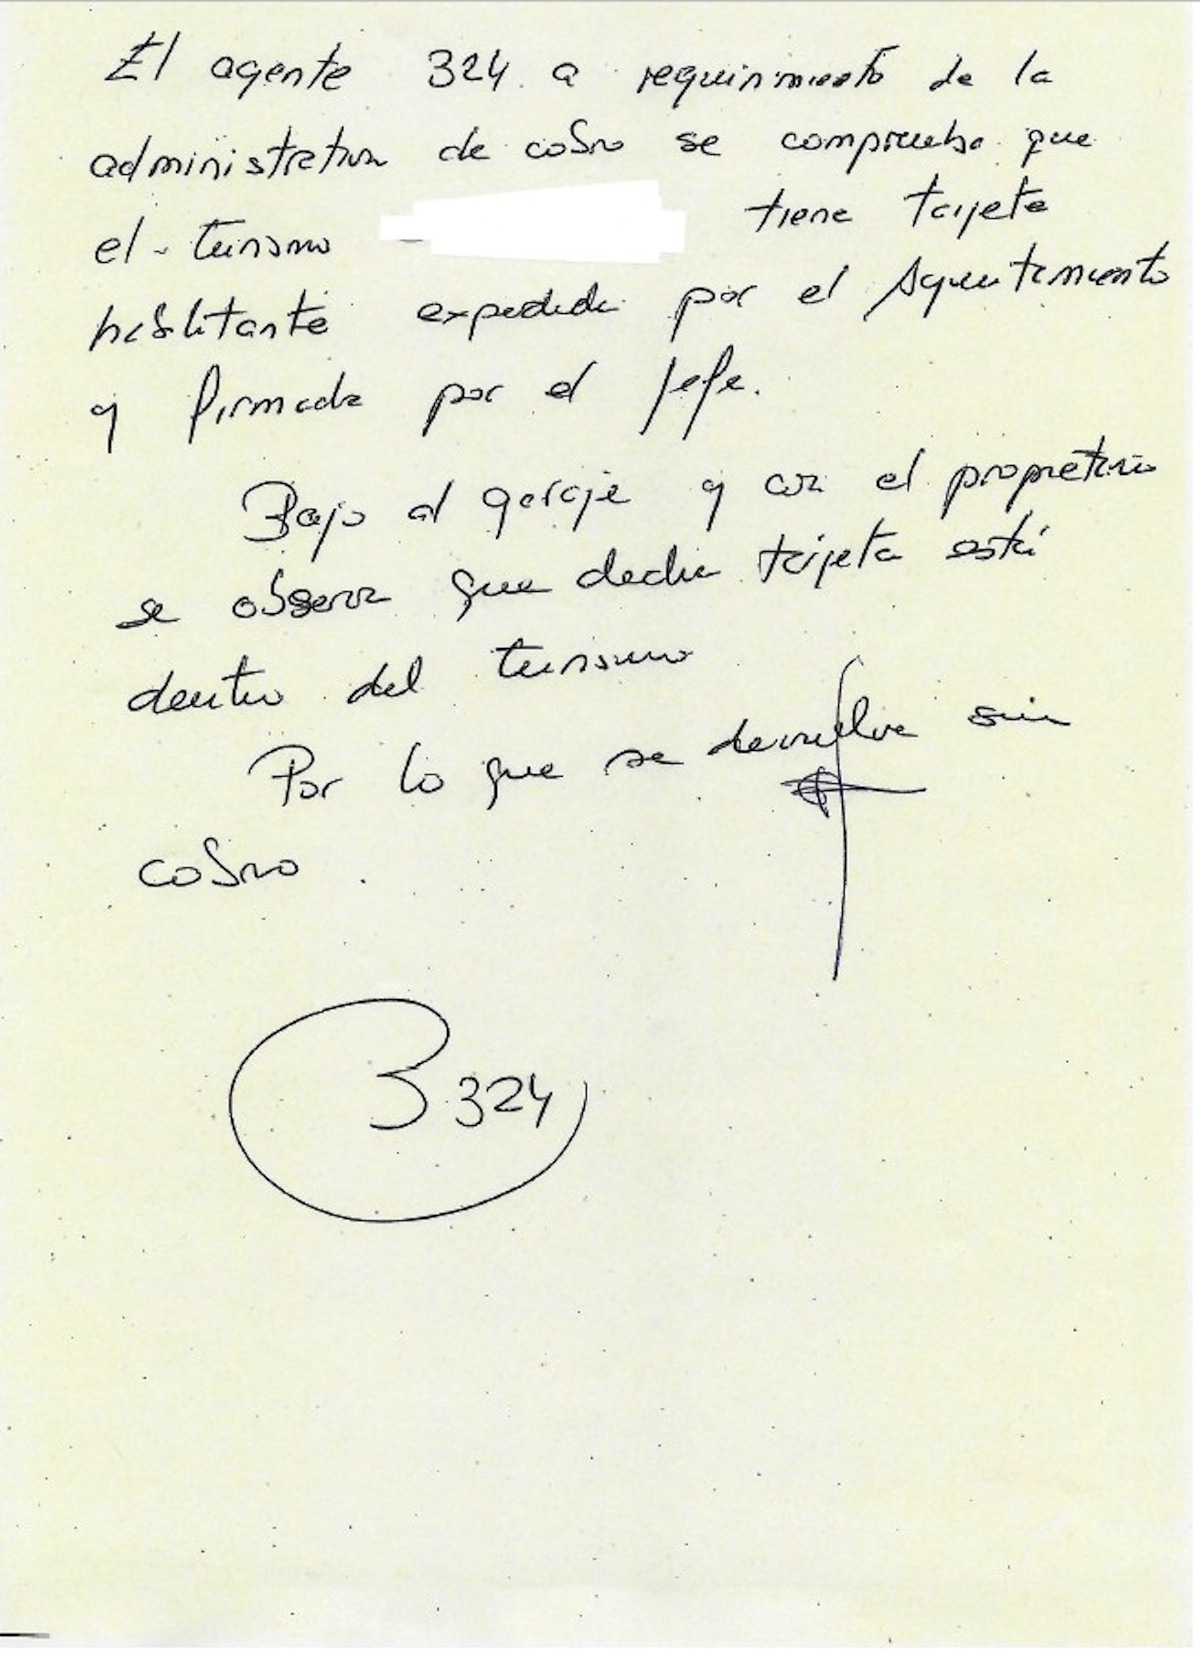 El agente 324 a requirimiento de la
administrativa de cobro se comprueba que
el turismo tiene tarjeta
habilitante expedida por el Ayuntamiento
y firmada por el Jefe.
Bajo al garaje y con el propietario
se observa que decha tarjeta está
dentro del turismo
Por lo que se devuelve sin
cobro.
324